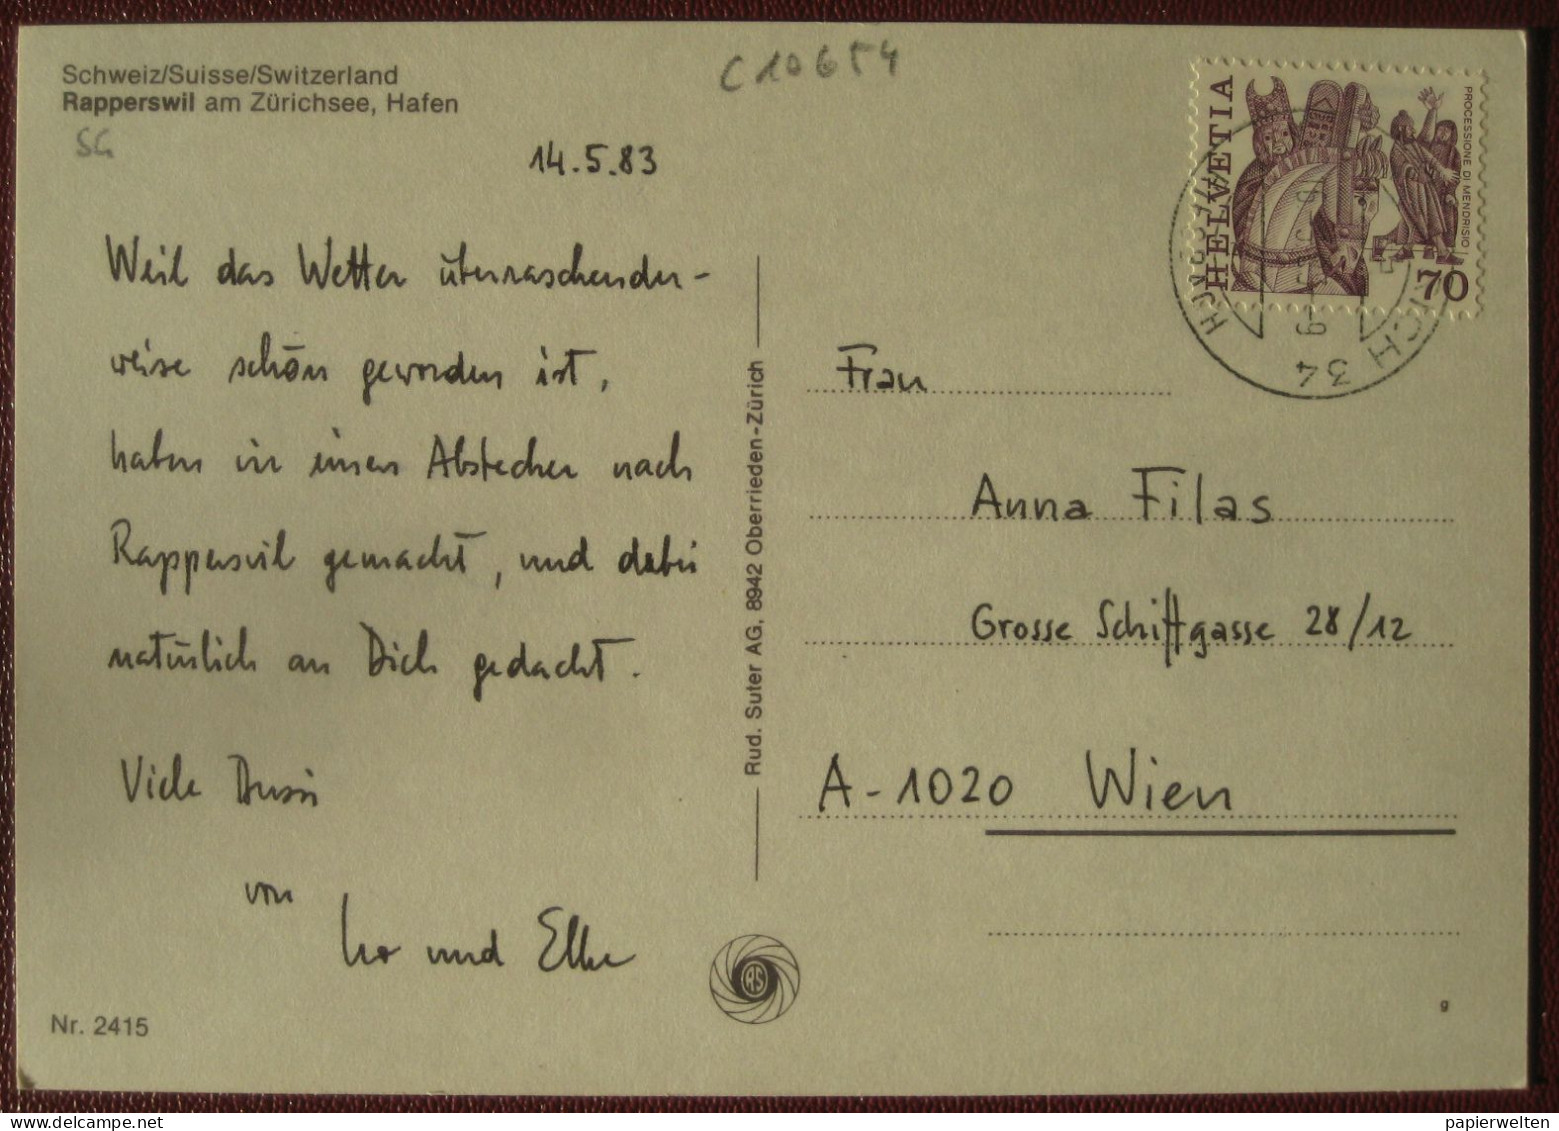 Schweiz/Suisse/Switzerland
Rapperswil am Zürichsee, Hafen
SG
C10654
14.5.83
Weil das Wetter überraschender-
weise schön geworden ist,
haben wir einen Abstecher nach
Rapperswil gemacht, und dabei
natürlich an Dich gedacht.
Viele Bussi
von
und Elke
Nr. 2415
Rud. Suter AG, 8942 Oberrieden-Zürich
RS
HELVETIA
PROCESSIONE DI MENDRISIO
70
34
Frau
Anna Filas
Grosse Schiffgasse 28/12
A-1020 Wien
g
papierwelten